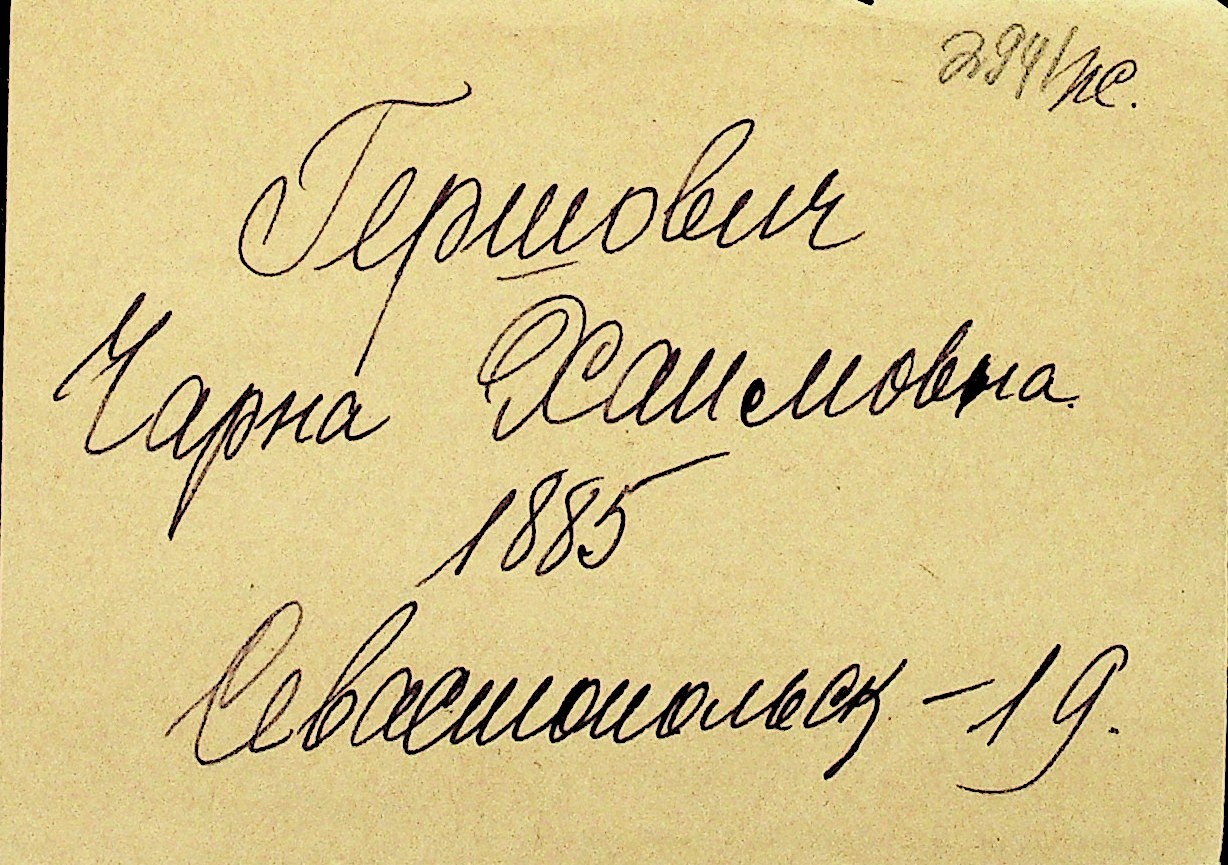 294/пс.
Гершович
Чарна Хаимовна
1885
Севастопольск - 19.